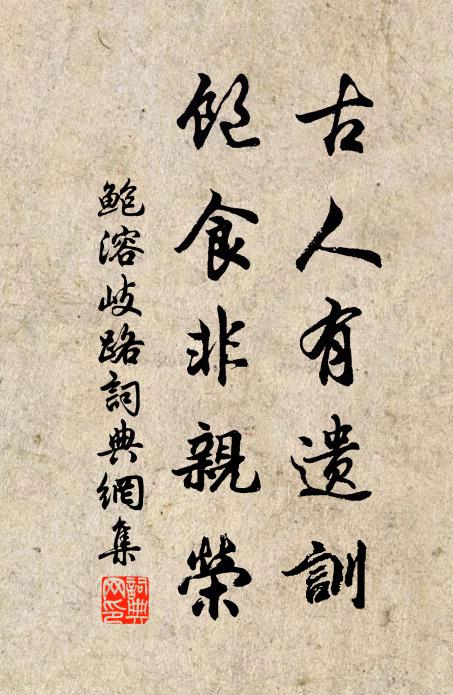 古人有遺訓
飽食非親榮
鮑溶岐路詞典網集
詞典網印